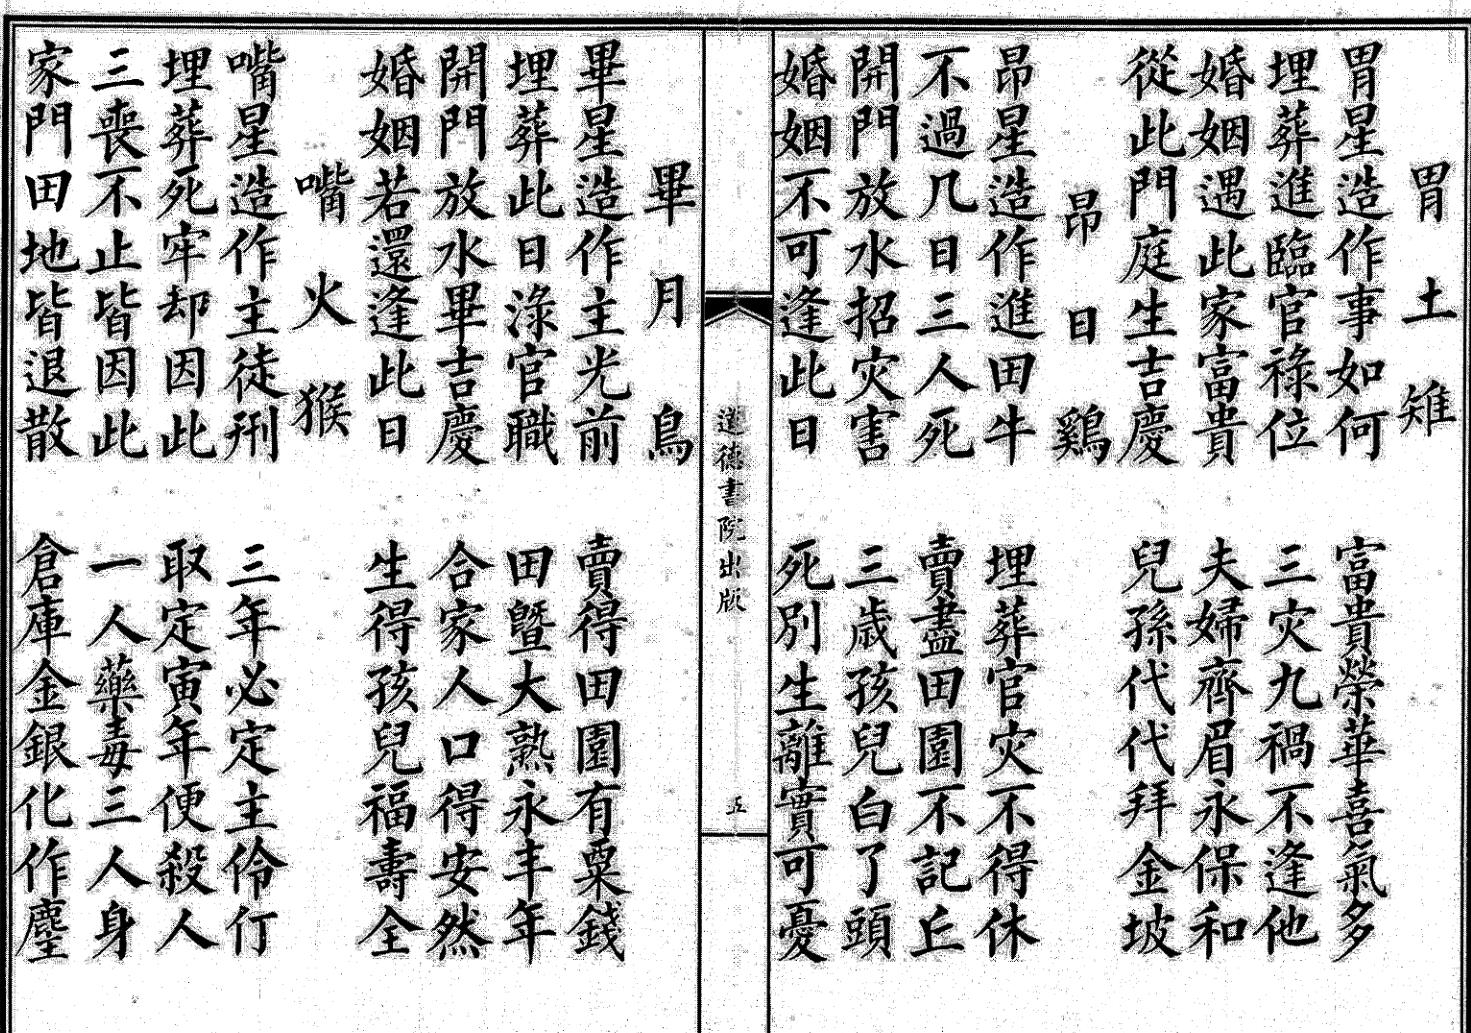 胃土雉
胃星造作事如何　富貴榮華喜氣多
埋葬進臨官祿位　三灾九禍不逢他
婚姻遇此家富貴　夫婦齊眉永保和
從此門庭生吉慶　兒孫代代拜金坡
昴日鷄
昴星造作進田牛　埋葬官灾不得休
不過几日三人死　賣盡田園不記丘
開門放水招灾害　三歳孩兒白了頭
婚姻不可逢此日　死別生離實可憂
道德書院出版
五
畢月烏
畢星造作主光前　賣得田園有粟錢
埋葬此日淥官職　田曁大熟永丰年
開門放水畢吉慶　合家人口得安然
婚姻若還逢此日　生得孩兒福壽全
嘴火猴
嘴星造作主徒刑　三年必定主伶仃
埋葬死牢却因此　取定寅年便殺人
三喪不止皆因此　一人藥毒三人身
家門田地皆退散　倉庫金銀化作塵